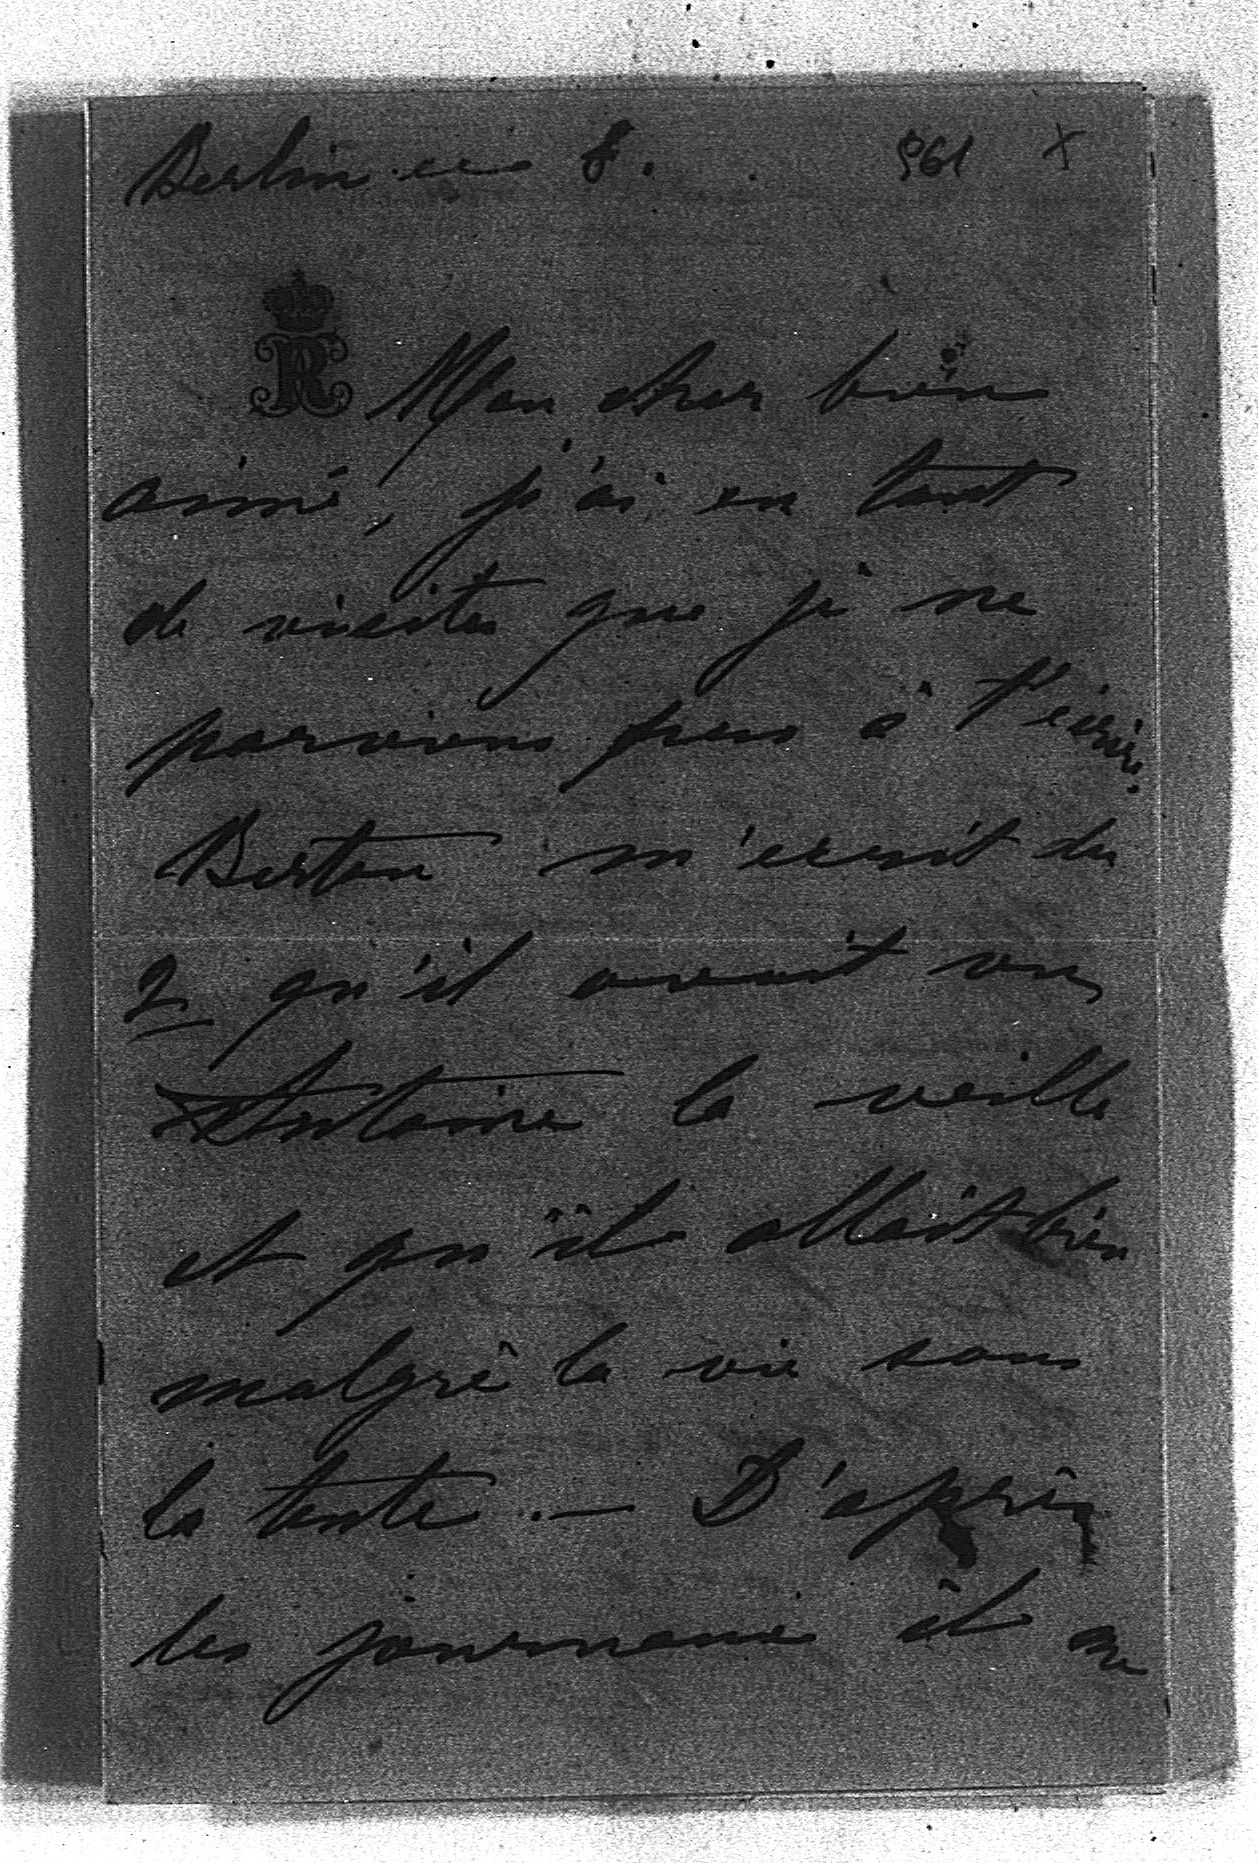 Berlin ce 8. 561 X
R Mon cher bien
aimé, j'ai eu tant
de visites que je ne
parviens pas à t'écrire.
m'écrit du
2 qu'il avait vu
Antoine la veille
et qu'il allait bien
malgré la vie sous
la tente. — D'après
les journaux il me